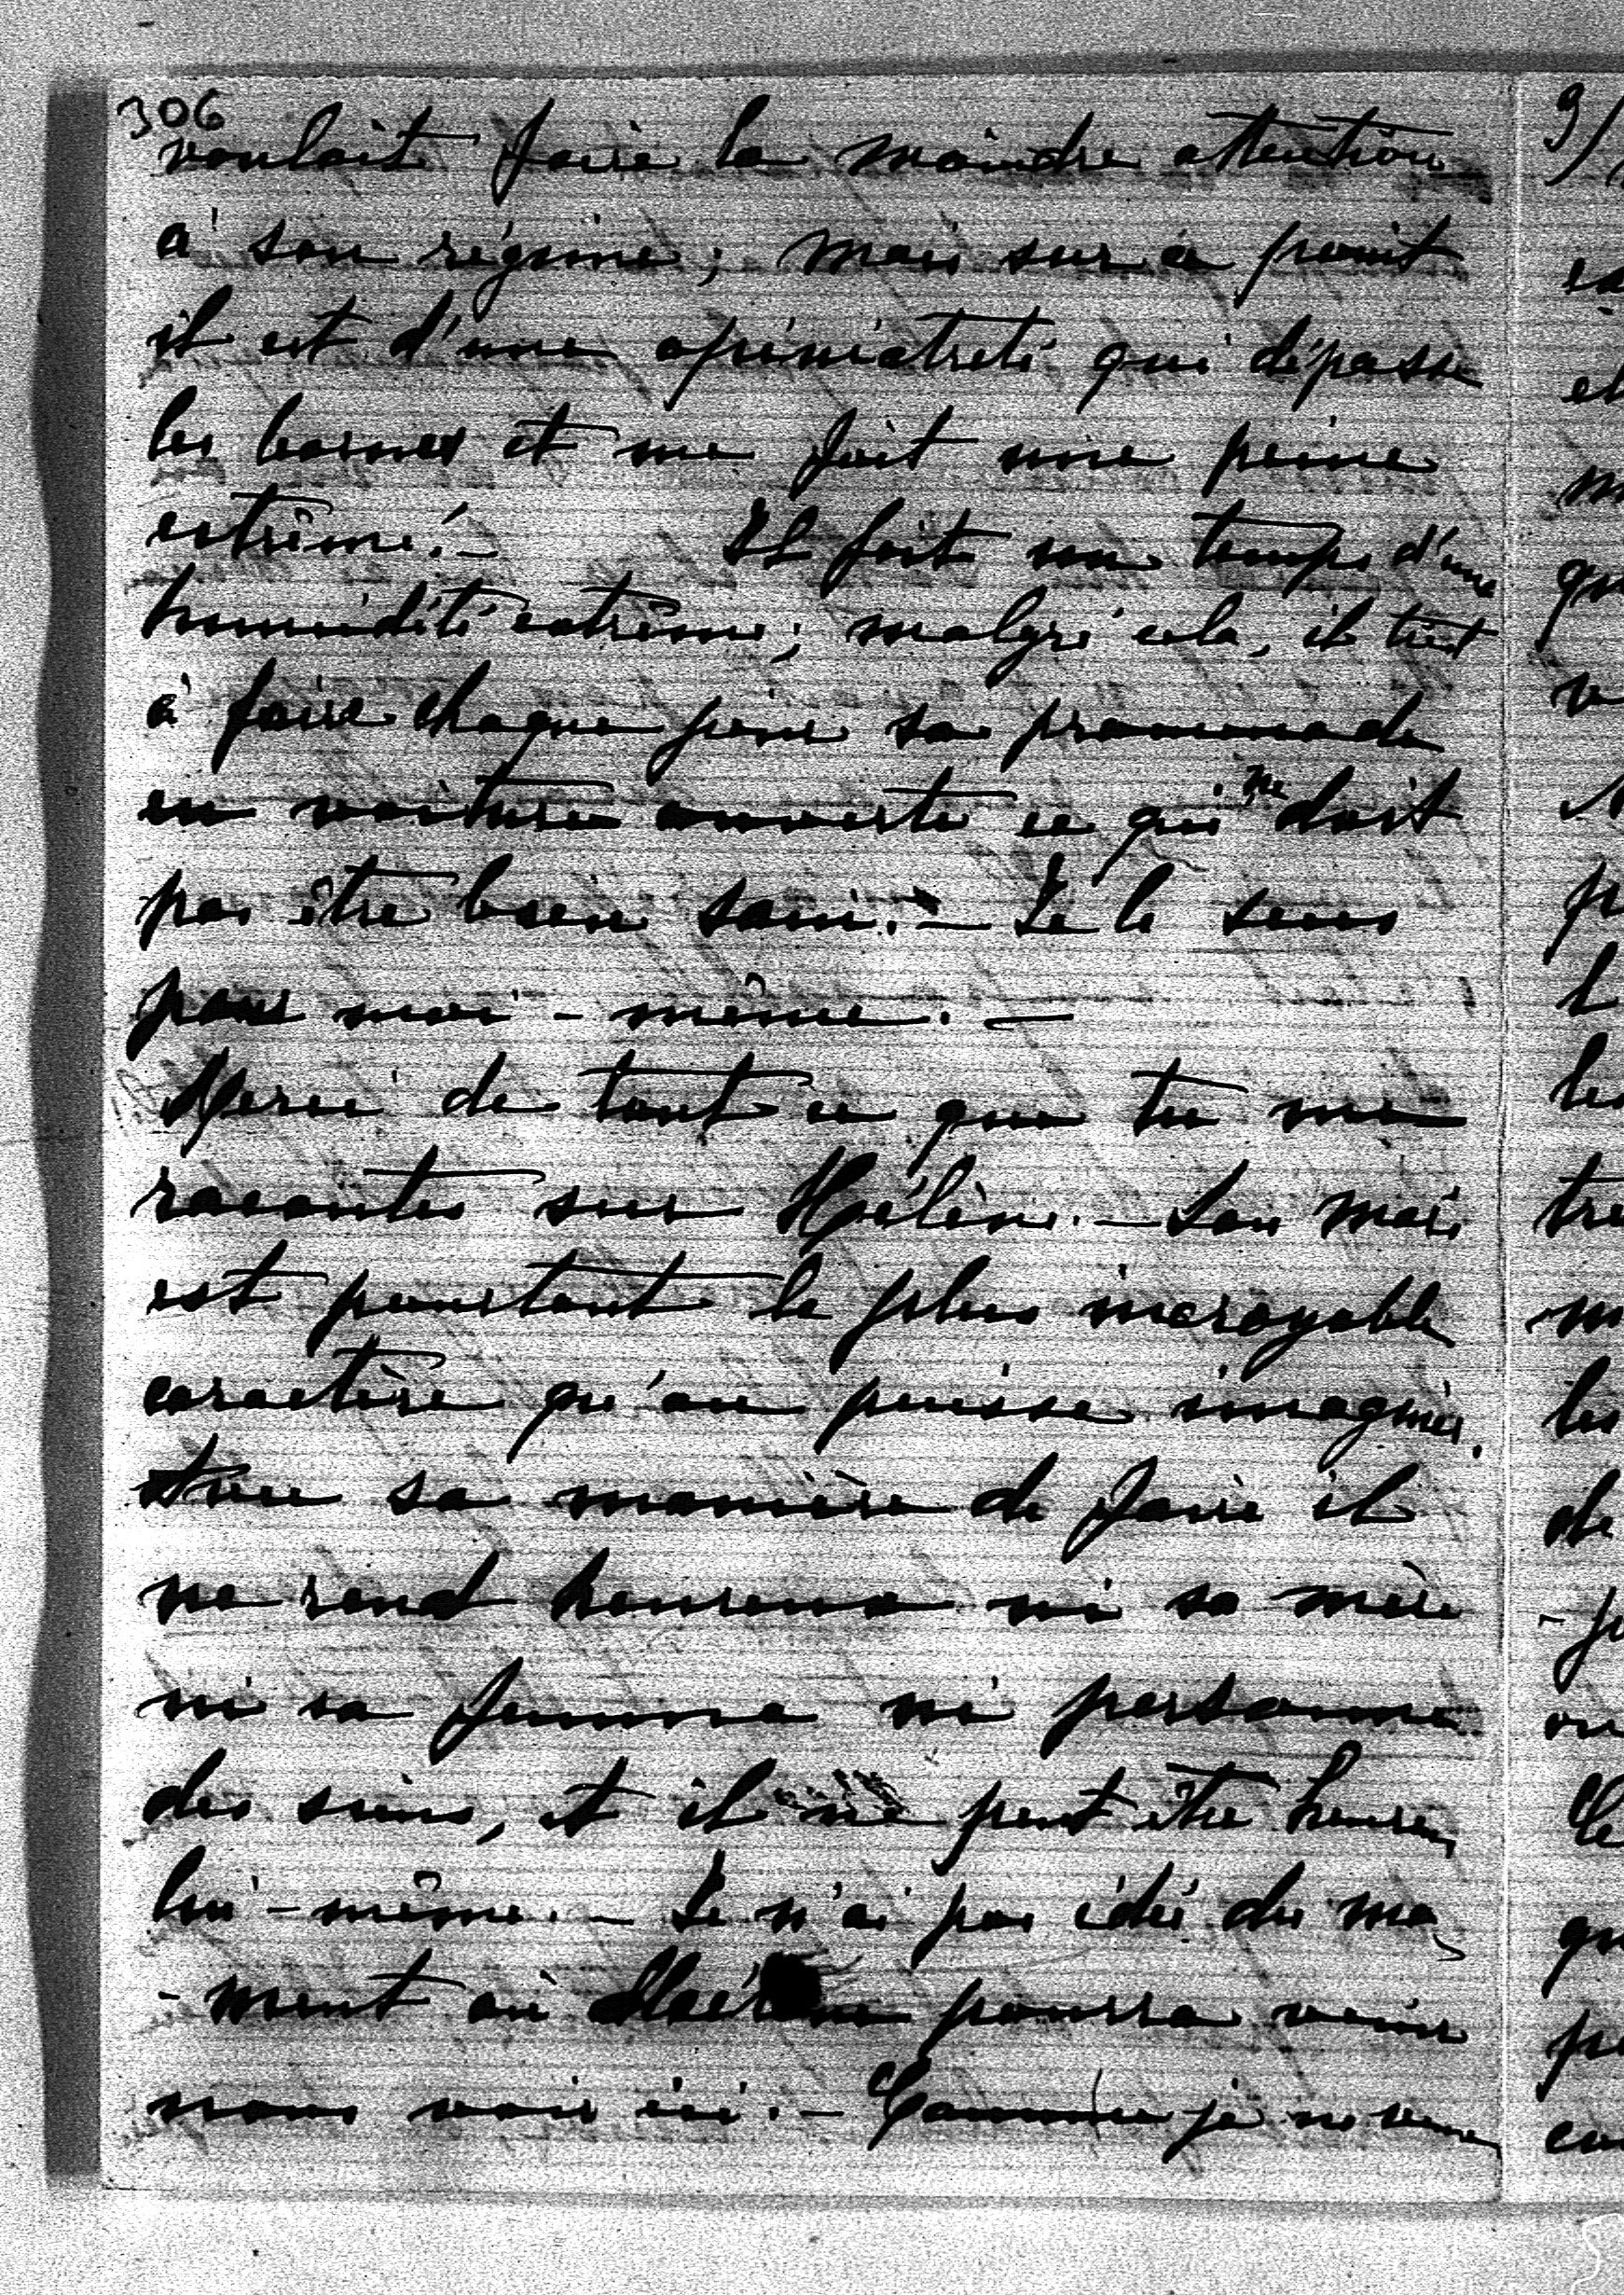 306
voulait faire la moindre attention
à son régime; mais sur ce point
il est d'une opiniâtreté qui dépasse
les bornes et me fait une peine
extrême. – Il fait un temps d'une
humidité extrême; malgré cela, il tient
à faire chaque jour sa promenade
en voiture ouverte ce qui ne doit
pas être bien sain. – Je le sens
pour moi-même. –
Merci de tout ce que tu me
racontes sur Hélène. – Son mari
est pourtant le plus incroyable
caractère qu'on puisse imaginer.
Avec sa manière de faire il
ne rend heureux ni sa mère
ni sa femme ni personne
des siens, et il ne peut être heureux
lui-même. – Je n'ai pas idée du mo
-ment où pourra venir
nous voir ici. – Comme je ne